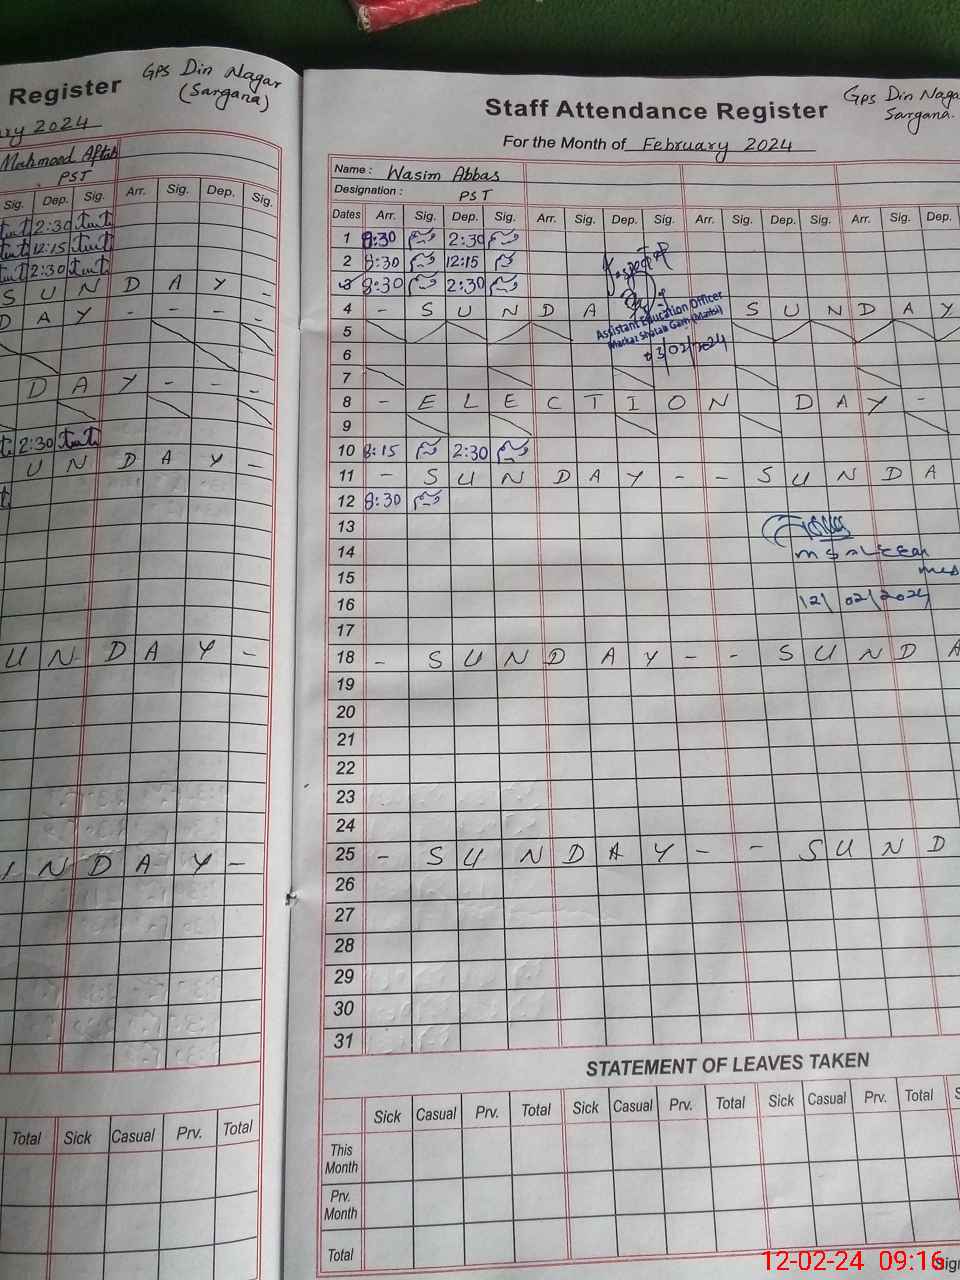 Register
GPS Din Nagar
(Sargana)
ry 2024
Mahmood Aftab
PST
Sig. Dep. Sig. Arr. Sig. Dep. Sig.
2:30
12:15
2:30
S U N D A Y -
D A Y - - - -
D A Y - - -
2:30
U N D A Y -
U N D A Y -
N D A Y -
Total Sick Casual Prv. Total
Staff Attendance Register
GPS Din Naga
Sargana.
For the Month of February 2024
Name : Wasim Abbas
Designation : PST
Dates Arr. Sig. Dep. Sig. Arr. Sig. Dep. Sig. Arr. Sig. Dep. Sig. Arr. Sig. Dep.
1 8:30 2:30
2 8:30 12:15
3 8:30 2:30
Inspected
4 - S U N D A Y - S U N D A Y
Assistant Education Officer
Markaz Shutab Garh (Manbi)
03/02/2024
5
6
7
8 - E L E C T I O N D A Y -
9
10 8:15 2:30
11 - S U N D A Y - - S U N D A
12 8:30
13
14
15
16
12/02/2024
17
18 - S U N D A Y - - S U N D A
19
20
21
22
23
24
25 - S U N D A Y - - S U N D
26
27
28
29
30
31
STATEMENT OF LEAVES TAKEN
Sick Casual Prv. Total Sick Casual Prv. Total Sick Casual Prv. Total S
This Month
Prv. Month
Total
12-02-24 09:16
Sign